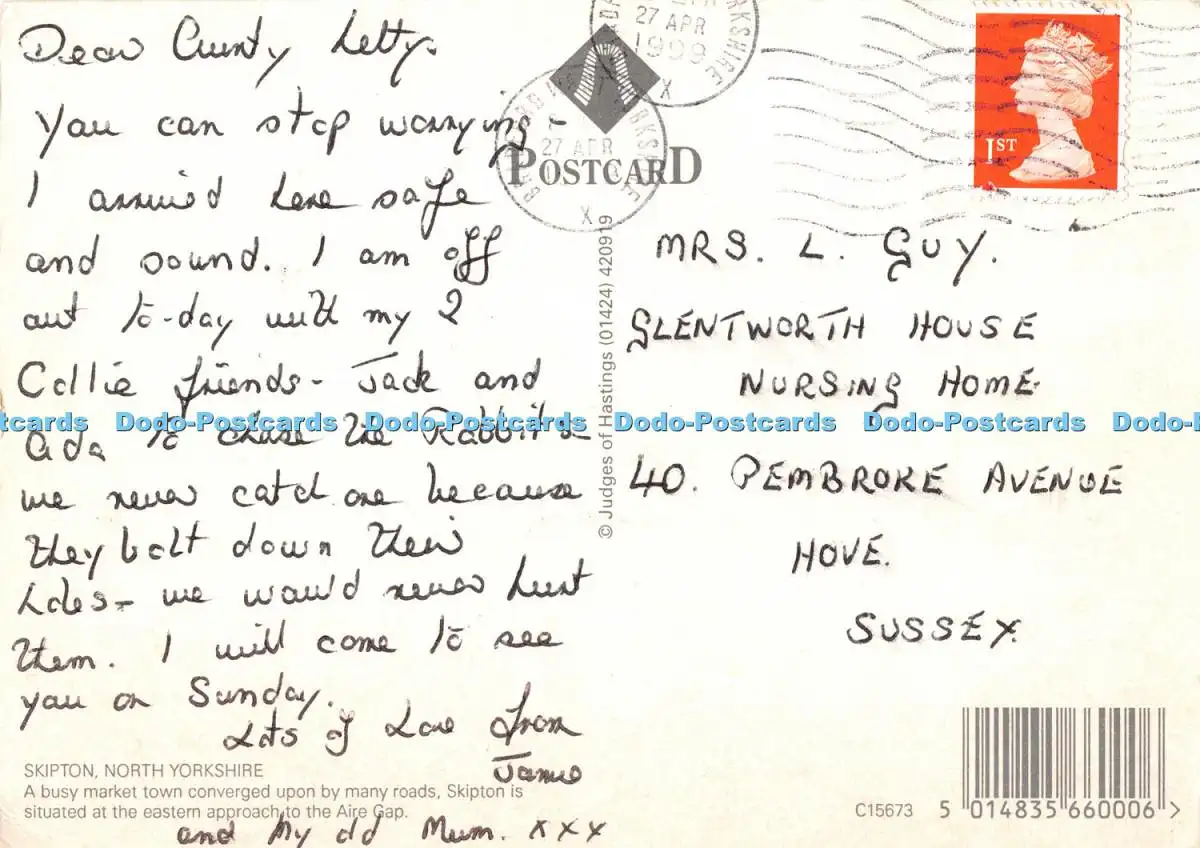 Dear Aunty Letty.
You can stop worrying -
I arrived here safe
and sound. I am off
out to-day with my 2
Collie friends - Jack and
Ada to chase the Rabbits -
we never catch one because
they bolt down their
holes - we would never hurt
them. I will come to see
you on Sunday.
Lots of Love from
Jamie
and My old Mum. xxx
SKIPTON, NORTH YORKSHIRE
A busy market town converged upon by many roads, Skipton is
situated at the eastern approach to the Aire Gap.
POSTCARD
27 APR
1999
YORKSHIRE
X
27 APR
X
1ST
© Judges of Hastings (01424) 420919
MRS. L. GUY.
GLENTWORTH HOUSE
NURSING HOME.
40. PEMBROKE AVENUE
HOVE.
SUSSEX.
C15673
5 014835 660006 >
Dodo-Postcards Dodo-Postcards Dodo-Postcards Dodo-Postcards